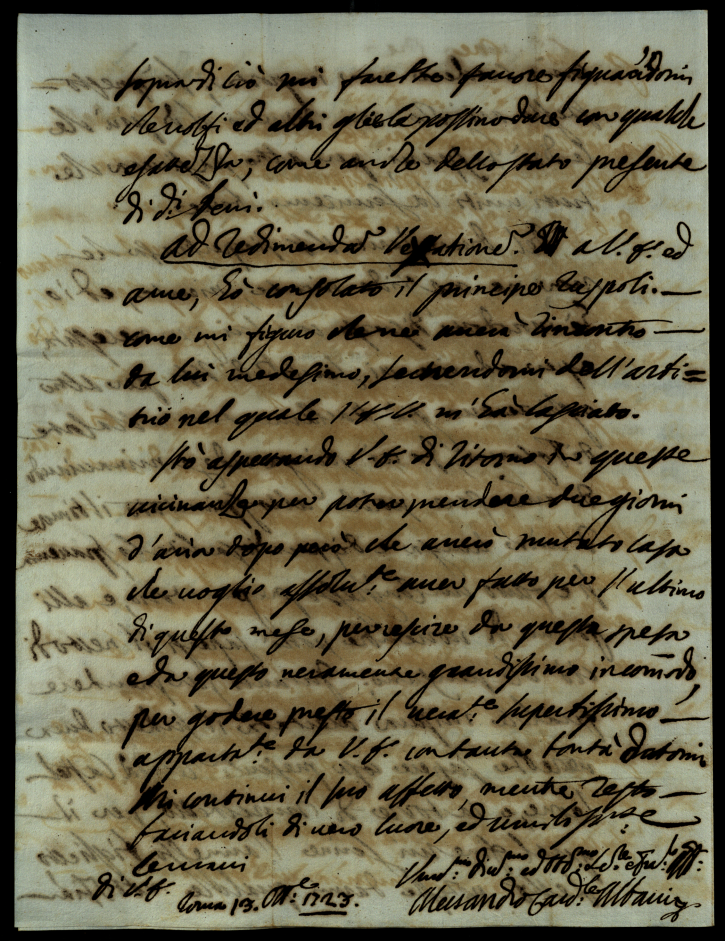 sopra di ciò mi farebbe favore, figurandomi
che volfi ed altri gliela possino dare con qualche
esattezza; come anche dello stato presente
di d.i beni.
ad redimenda vexatione a V. E. ed
a me, hò consolato il principe Ruspoli. —
come mi figuro che ne averà rincontro —
da lui medesimo, servendomi dell'arbi=
trio nel quale l'E. V. m'hà lasciato.
Stò aspettando V. E. di ritorno da queste
vicinanze per poter prendere due giorni
d'aria dopo però che averò mutato casa
che voglio assolut.e aver fatto per l'ultimo
di questo mese, per uscire da questa spesa
e da questo veramente grandissimo incomodo,
per godere presto il vera.te superbissimo —
appartam.te da V. E. con tanta bontà datomi
Mi continui il suo affetto, mentre resto —
baciandoli di vero cuore, ed umilissim.e
le mani
di V. E.
Roma 13. 1723.
Alessandro Card.le Albani